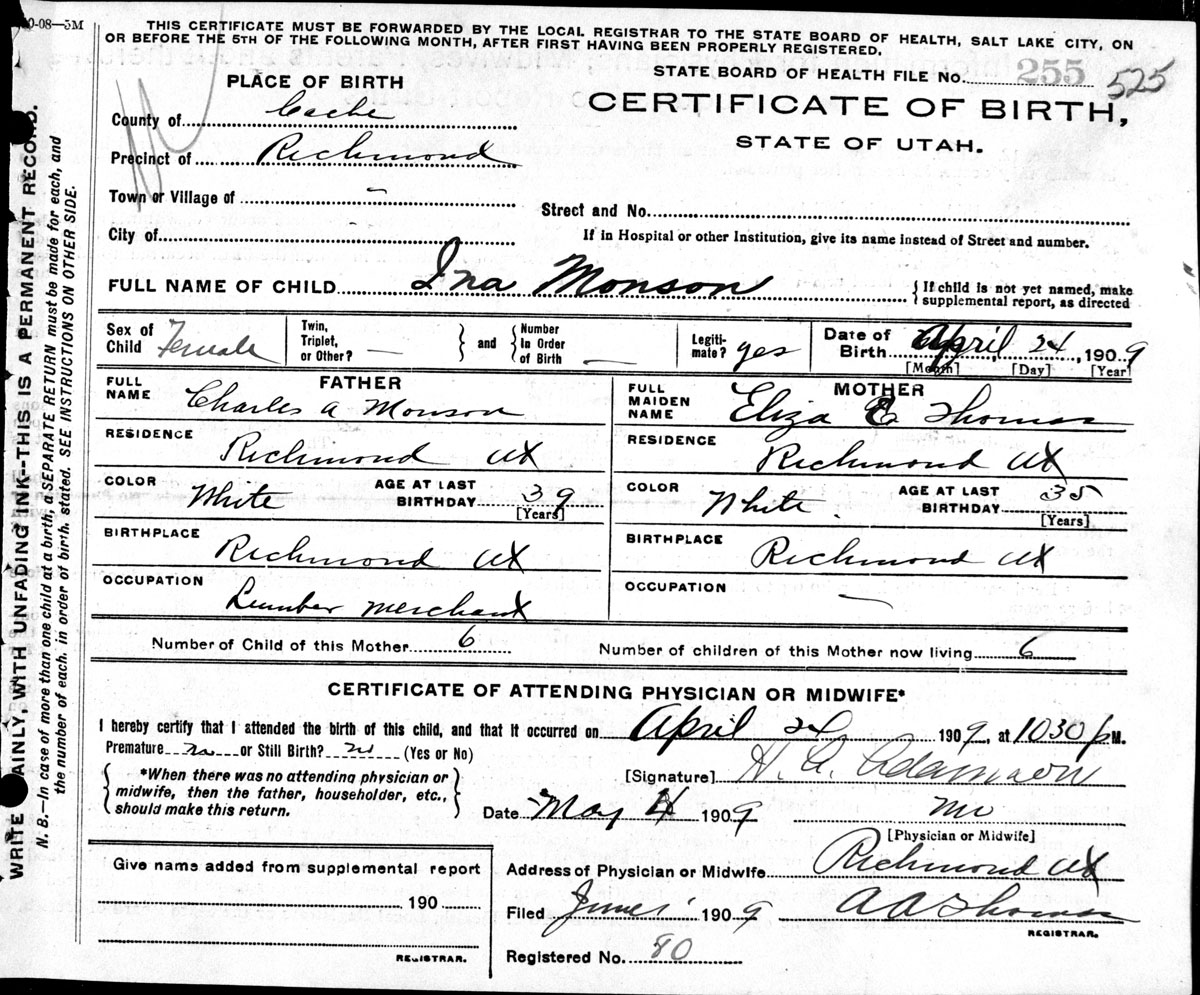 10-08—5M
THIS CERTIFICATE MUST BE FORWARDED BY THE LOCAL REGISTRAR TO THE STATE BOARD OF HEALTH, SALT LAKE CITY, ON
OR BEFORE THE 5TH OF THE FOLLOWING MONTH, AFTER FIRST HAVING BEEN PROPERLY REGISTERED.
STATE BOARD OF HEALTH FILE No. 255 525
CERTIFICATE OF BIRTH,
STATE OF UTAH.
PLACE OF BIRTH
County of Cache
Precinct of Richmond
Town or Village of -
City of
Street and No.
If in Hospital or other Institution, give its name instead of Street and number.
FULL NAME OF CHILD Ina Monson
{ If child is not yet named, make
supplemental report, as directed
Sex of Child Female
Twin, Triplet, or Other? —
} and { Number In Order of Birth —
Legiti-mate? yes
Date of Birth April 24, 1909
[Month] [Day] [Year]
FATHER
FULL NAME Charles A Monson
RESIDENCE Richmond Ut
COLOR White AGE AT LAST BIRTHDAY 39
[Years]
BIRTHPLACE Richmond Ut
OCCUPATION Lumber Merchant
MOTHER
FULL MAIDEN NAME Eliza E Thomas
RESIDENCE Richmond Ut
COLOR White. AGE AT LAST BIRTHDAY 35
[Years]
BIRTHPLACE Richmond Ut
OCCUPATION —
Number of Child of this Mother 6 Number of children of this Mother now living 6
CERTIFICATE OF ATTENDING PHYSICIAN OR MIDWIFE*
I hereby certify that I attended the birth of this child, and that it occurred on April 24 1909, at 1030 p M.
Premature no or Still Birth? no (Yes or No)
{ *When there was no attending physician or
midwife, then the father, householder, etc.,
should make this return. }
[Signature] H. A. Adamson
Date May 4 1909 MD
[Physician or Midwife]
Address of Physician or Midwife Richmond Ut
Filed June 1 1909 A A Thomas
REGISTRAR.
Registered No. 80
Give name added from supplemental report
190
REGISTRAR.
WRITE PLAINLY, WITH UNFADING INK--THIS IS A PERMANENT RECORD.
N. B.—In case of more than one child at a birth, a SEPARATE RETURN must be made for each, and
the number of each, in order of birth, stated. SEE INSTRUCTIONS ON OTHER SIDE.